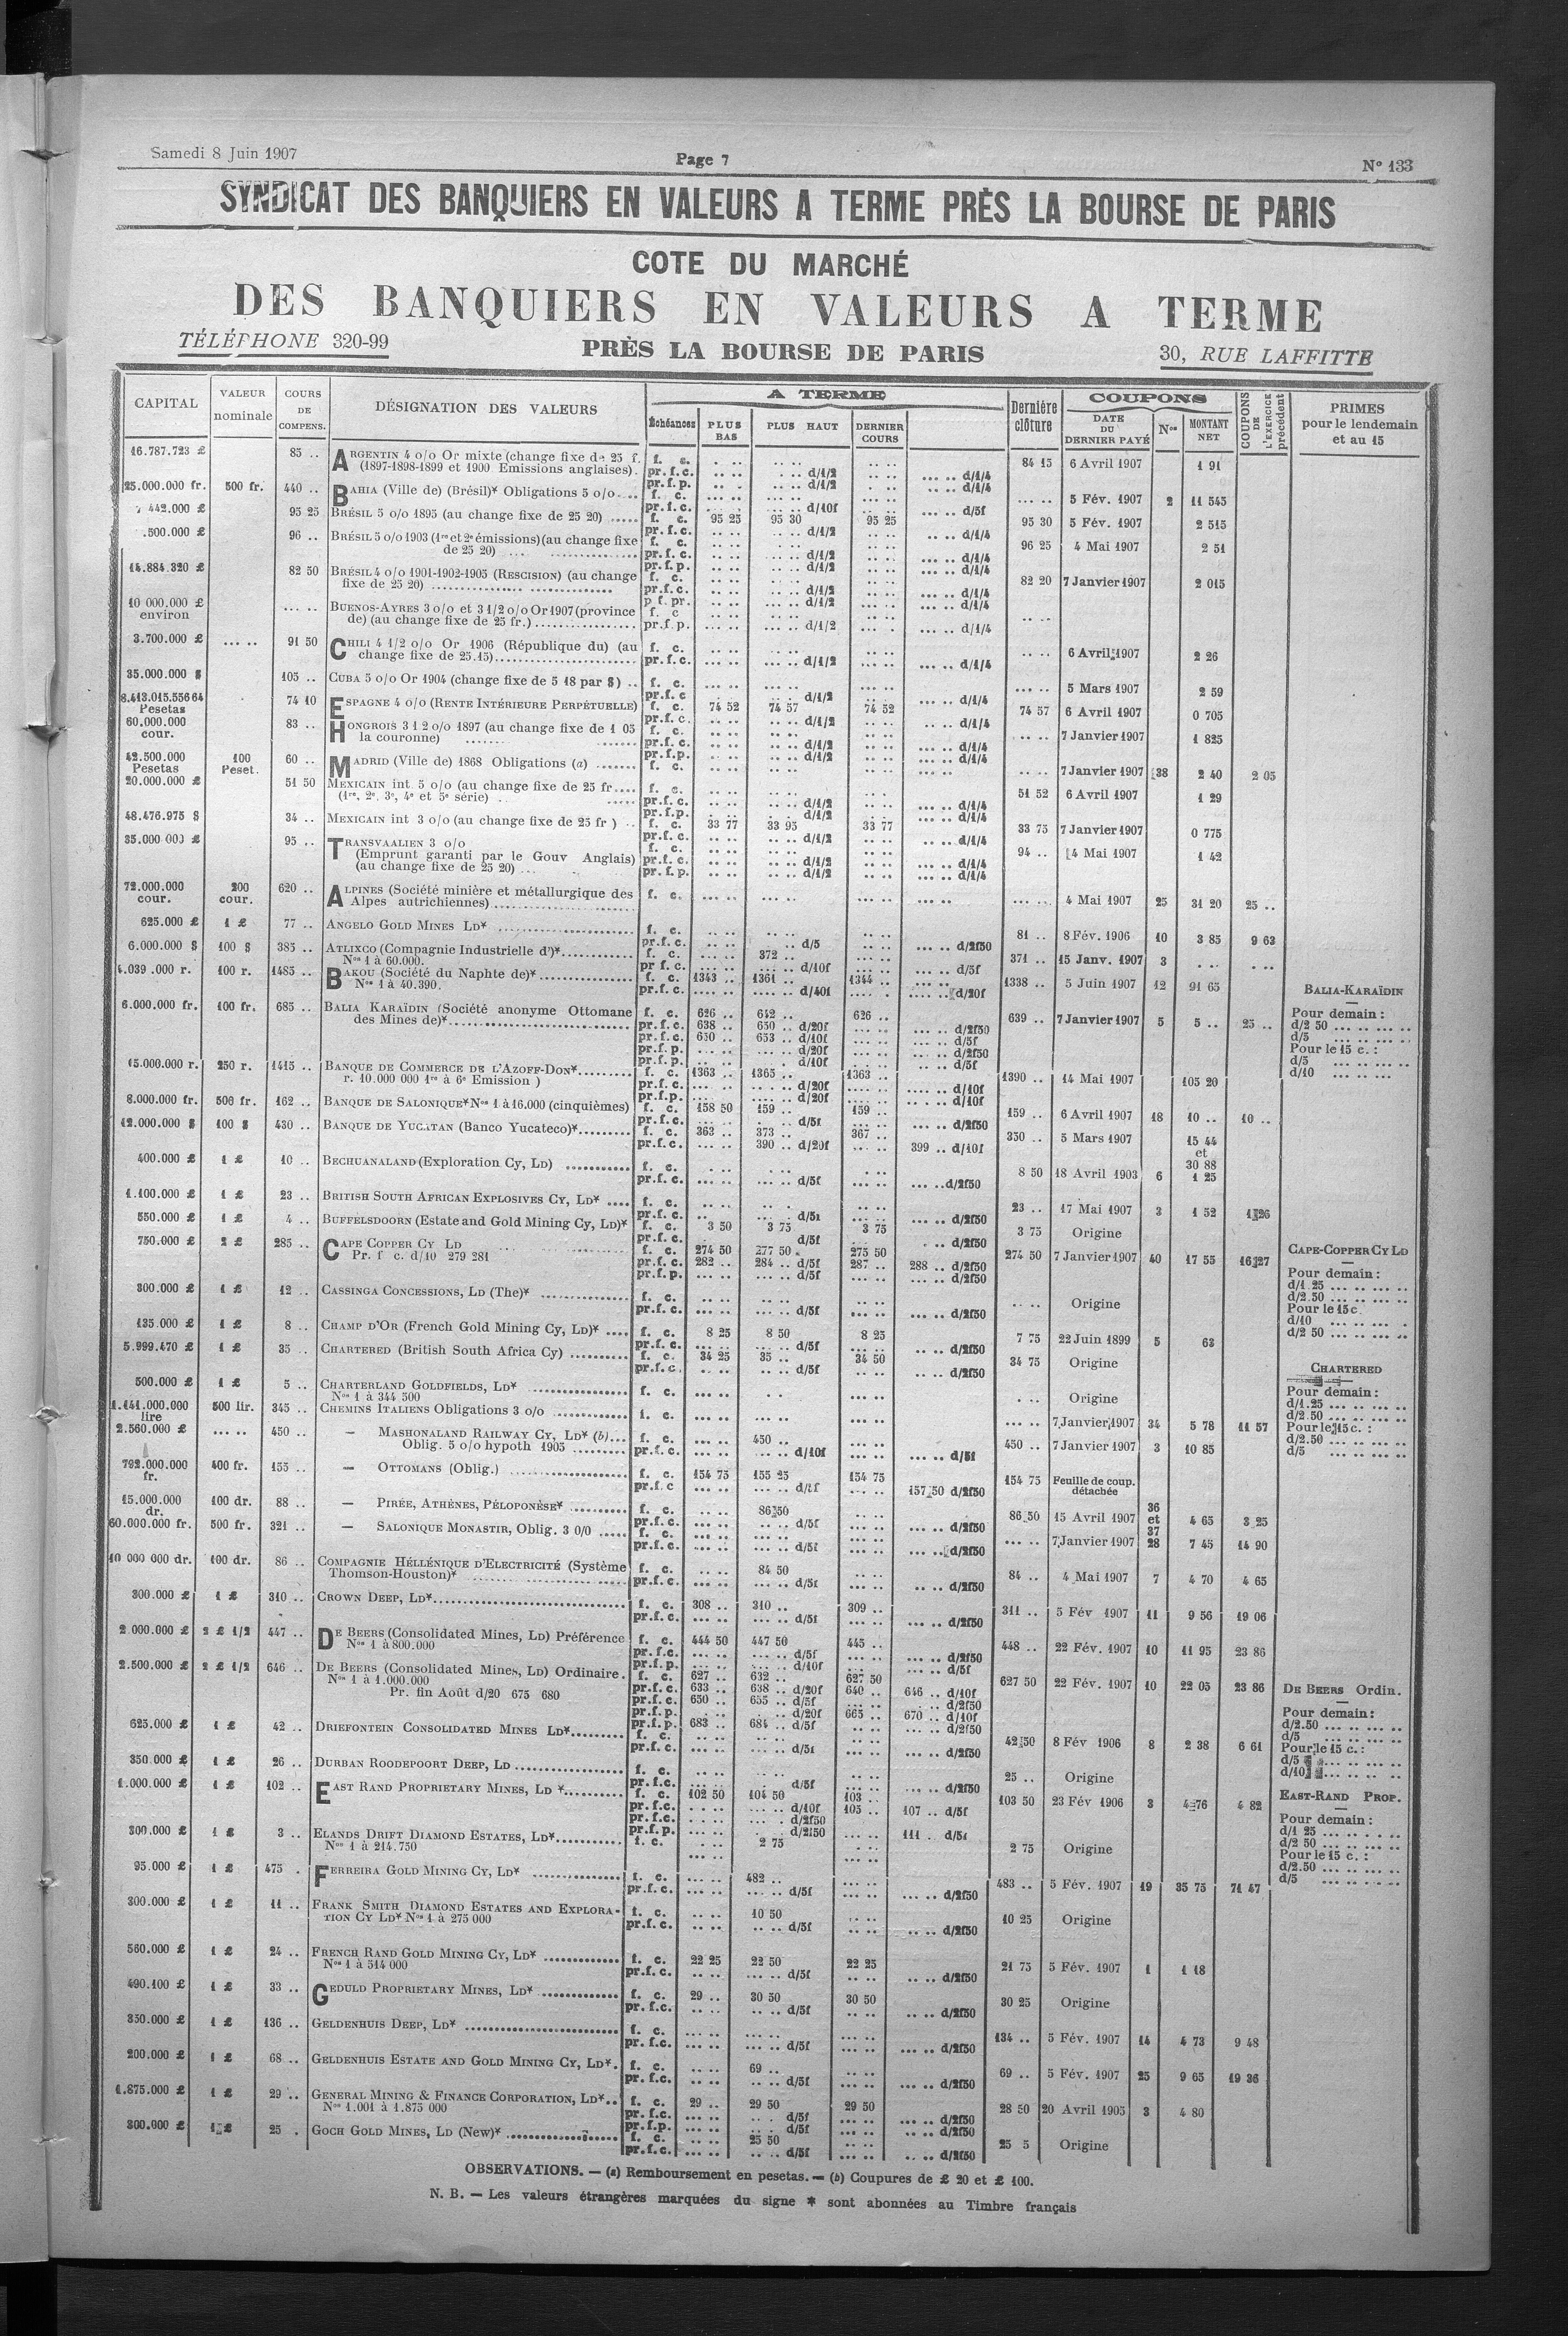 Samedi 8 Juin 1907
Page 7
N° 133
SYNDICAT DES BANQUIERS EN VALEURS A TERME PRÈS LA BOURSE DE PARIS
COTE DU MARCHÉ
DES BANQUIERS EN VALEURS A TERME
TÉLÉPHONE 320-99
PRÈS LA BOURSE DE PARIS
30, RUE LAFFITTE
CAPITAL
VALEUR nominale
COURS DE COMPENS.
DÉSIGNATION DES VALEURS
A TERME
Échéances
PLUS BAS
PLUS HAUT
DERNIER COURS
Dernière clôture
COUPONS
DATE DU DERNIER PAYÉ
Nos
MONTANT NET
COUPONS DE L'EXERCICE précédent
PRIMES pour le lendemain et au 15
16.787.723 £ 85 .. ARGENTIN 4 o/o Or mixte (change fixe de 25 f. f. c. 84 15 6 Avril 1907 1 91
(1897-1898-1899 et 1900 Emissions anglaises). pr.f.c. d/1/2 d/1/4
pr.f.p. d/1/2 d/1/4
25.000.000 fr. 500 fr. 440 .. BAHIA (Ville de) (Brésil)* Obligations 5 o/o f. c. 5 Fév. 1907 2 11 545
pr.f.c. d/10f d/5f
95 25 BRÉSIL 5 o/o 1895 (au change fixe de 25 20) f. c. 95 25 95 30 95 25 95 30 5 Fév. 1907 2 515
pr.f.c. d/1/2 d/1/4
.500.000 £ 96 .. BRÉSIL 5 o/o 1903 (1re et 2e émissions) (au change fixe f. c. 96 25 4 Mai 1907 2 51
de 25 20) pr.f.c. d/1/2 d/1/4
pr.f.p. d/1/2 d/1/4
14.884.320 £ 82 50 BRÉSIL 4 o/o 1901-1902-1905 (RESCISION) (au change f. c. 82 20 7 Janvier 1907 2 015
fixe de 25 20) pr.f.c. d/1/2 d/1/4
p f.pr. d/1/2 d/1/4
10 000.000 £ environ BUENOS-AYRES 3 o/o et 3 1/2 o/o Or 1907 (province f. c
de) (au change fixe de 25 fr.) pr.f.p. d/1/2 d/1/4
3.700.000 £ 91 50 CHILI 4 1/2 o/o Or 1906 (République du) (au f. c. 6 Avril 1907 2 26
change fixe de 25.15) pr.f.c. d/1/2 d/1/4
35.000.000 $ 105 .. CUBA 5 o/o Or 1904 (change fixe de 5 18 par $) .. f. c. 5 Mars 1907 2 59
pr.f.c d/1/2 d/1/4
8.413.015.556 64 Pesetas 74 10 ESPAGNE 4 o/o (RENTE INTÉRIEURE PERPÉTUELLE) f. c. 74 52 74 57 74 52 74 57 6 Avril 1907 0 705
pr.f.c. d/1/2 d/1/4
60.000.000 cour. 83 .. HONGROIS 3 1 2 o/o 1897 (au change fixe de 1 05 f. c. 7 Janvier 1907 1 825
la couronne) pr.f.c. d/1/2 d/1/4
pr.f.p. d/1/2 d/1/4
42.500.000 Pesetas 100 Peset. 60 .. MADRID (Ville de) 1868 Obligations (a) f. c. 7 Janvier 1907 38 2 40 2 05
20.000.000 £ 51 50 MEXICAIN int. 5 o/o (au change fixe de 25 fr f. c. 51 52 6 Avril 1907 1 29
(1re, 2e, 3e, 4e et 5e série) pr.f.c. d/1/2 d/1/4
pr.f.p. d/1/2 d/1/4
48.476.975 $ 34 .. MEXICAIN int 3 o/o (au change fixe de 25 fr ) .. f. c. 33 77 33 95 33 77 33 75 7 Janvier 1907 0 775
pr.f.c. d/1/2 d/1/4
35.000 000 £ 95 .. TRANSVAALIEN 3 o/o f. c. 94 .. 4 Mai 1907 1 42
(Emprunt garanti par le Gouv Anglais) pr.f.c. d/1/2 d/1/4
(au change fixe de 25 20) pr.f.p. d/1/2 d/1/4
72.000.000 cour. 200 cour. 620 .. ALPINES (Société minière et métallurgique des f. c. 4 Mai 1907 25 31 20 25 ..
Alpes autrichiennes)
625.000 £ 1 £ 77 .. ANGELO GOLD MINES LD* f. c. 81 .. 8 Fév. 1906 10 3 85 9 63
pr.f.c. d/5 d/2f50
6.000.000 $ 100 $ 385 .. ATLIXCO (Compagnie Industrielle d')* f. c. 372 .. 371 .. 15 Janv. 1907 3
Nos 1 à 60.000. pr f.c. d/10f d/5f
4.039.000 r. 100 r. 1485 .. BAKOU (Société du Naphte de)* f. c. 1343 .. 1361 .. 1344 .. 1338 .. 5 Juin 1907 12 91 65
Nos 1 à 40.390. pr.f.c. d/40f d/20f
6.000.000 fr. 100 fr. 685 .. BALIA KARAÏDIN (Société anonyme Ottomane f. c. 626 .. 642 .. 626 .. 639 .. 7 Janvier 1907 5 5 .. 25 ..
des Mines de)* pr.f.c. 638 .. 650 .. d/20f d/2f50
pr.f.c. 650 .. 653 .. d/10f d/5f
pr.f.p. d/20f d/2f50
pr.f.p. d/10f d/5f
15.000.000 r. 250 r. 1415 .. BANQUE DE COMMERCE DE L'AZOFF-DON* f. c. 1363 .. 1365 .. 1363 .. 1390 .. 14 Mai 1907 105 20
r. 10.000 000 1re à 6e Emission ) pr.f.c. d/20f d/10f
pr.f.p. d/20f d/10f
8.000.000 fr. 500 fr. 162 .. BANQUE DE SALONIQUE* Nos 1 à 16.000 (cinquièmes) f. c. 158 50 159 .. 159 .. 159 .. 6 Avril 1907 18 10 .. 10 ..
pr.f.c. d/5f d/2f50
12.000.000 $ 100 $ 430 .. BANQUE DE YUCATAN (Banco Yucateco)* f. c. 363 .. 373 .. 367 .. 350 .. 5 Mars 1907 15 44 et 30 88
pr.f.c. 390 .. d/20f 399 .. d/10f
400.000 £ 1 £ 10 .. BECHUANALAND (Exploration Cy, LD) f. c. 8 50 18 Avril 1903 6 1 25
pr.f.c. d/5f d/2f50
1.100.000 £ 1 £ 23 .. BRITISH SOUTH AFRICAN EXPLOSIVES CY, LD* f. c. 23 .. 17 Mai 1907 3 1 52 1 26
pr.f.c. d/5f d/2f50
550.000 £ 1 £ 4 .. BUFFELSDOORN (Estate and Gold Mining Cy, LD)* f. c. 3 50 3 75 3 75 3 75 Origine
pr.f.c. d/5f d/2f50
750.000 £ 2 £ 285 .. CAPE COPPER CY LD f. c. 274 50 277 50 275 50 274 50 7 Janvier 1907 40 17 55 16 27
Pr. f c. d/10 279 281 pr.f.c. 282 .. 284 .. d/5f 287 .. 288 .. d/2f50
pr.f.p. d/5f d/2f50
300.000 £ 1 £ 12 .. CASSINGA CONCESSIONS, LD (The)* f. c. Origine
pr.f.c. d/5f d/2f50
135.000 £ 1 £ 8 .. CHAMP D'OR (French Gold Mining Cy, LD)* f. c. 8 25 8 50 8 25 7 75 22 Juin 1899 5 63
pr.f.c. d/5f d/2f50
5.999.470 £ 1 £ 35 .. CHARTERED (British South Africa Cy) f. c. 34 25 35 .. 34 50 34 75 Origine
pr.f.c. d/5f d/2f50
500.000 £ 1 £ 5 .. CHARTERLAND GOLDFIELDS, LD* f. c. Origine
Nos 1 à 344 500
1.141.000.000 lire 500 lir. 345 .. CHEMINS ITALIENS Obligations 3 o/o f. c. 7 Janvier 1907 34 5 78 11 57
2.560.000 £ 450 .. — MASHONALAND RAILWAY CY, LD* (b) f. c. 450 .. 450 .. 7 Janvier 1907 3 10 85
Oblig. 5 o/o hypoth 1905 pr.f.c. d/10f d/5f
792.000.000 fr. 400 fr. 155 .. — OTTOMANS (Oblig.) f. c. 154 75 155 25 154 75 154 75 Feuille de coup. détachée
pr.f.c 157 50 d/2f50
15.000.000 dr. 100 dr. 88 .. — PIRÉE, ATHÈNES, PÉLOPONÈSE* f. c. 86 50 86 50 15 Avril 1907 36 et 37 4 65 3 25
pr.f.c. d/5f d/2f50
60.000.000 fr. 500 fr. 321 .. — SALONIQUE MONASTIR, Oblig. 3 0/0 f. c. 7 Janvier 1907 28 7 45 14 90
pr.f.c. d/5f d/2f50
10 000 000 dr. 100 dr. 86 .. COMPAGNIE HÉLLÉNIQUE D'ELECTRICITÉ (Système f. c. 84 50 84 .. 4 Mai 1907 7 4 70 4 65
Thomson-Houston)* pr.f.c. d/5f d/2f50
300.000 £ 1 £ 310 .. CROWN DEEP, LD* f. c. 308 .. 310 .. 309 .. 311 .. 5 Fév 1907 11 9 56 19 06
pr.f.c. d/5f d/2f50
2.000.000 £ 2 £ 1/2 447 .. DE BEERS (Consolidated Mines, LD) Préférence f. c. 444 50 447 50 445 .. 448 .. 22 Fév. 1907 10 11 95 23 86
Nos 1 à 800.000 pr.f.c. d/5f d/2f50
pr.f.p. d/10f d/5f
2.500.000 £ 2 £ 1/2 646 .. DE BEERS (Consolidated Mines, LD) Ordinaire. f. c. 627 .. 632 .. 627 50 627 50 22 Fév. 1907 10 22 05 23 86
Nos 1 à 1.000.000 pr.f.c. 633 .. 638 .. d/20f 640 .. 646 .. d/10f
Pr. fin Août d/20 675 680 pr.f.c. 650 .. 655 .. d/5f d/2f50
pr.f.p. d/20f 665 .. 670 .. d/10f
pr.f.p. 683 .. 684 .. d/5f d/2f50
625.000 £ 1 £ 42 .. DRIEFONTEIN CONSOLIDATED MINES LD* f. c. 42 50 8 Fév 1906 8 2 38 6 61
pr.f.c. d/5f d/2f50
350.000 £ 1 £ 26 .. DURBAN ROODEPOORT DEEP, LD f. c. 25 .. Origine
pr.f.c. d/5f d/2f50
1.000.000 £ 1 £ 102 .. EAST RAND PROPRIETARY MINES, LD * f. c. 102 50 104 50 103 .. 103 50 23 Fév 1906 3 4 76 4 82
pr.f.c. d/10f 105 .. 107 .. d/5f
pr.f.c. d/2f50
pr.f.p. d/2f50 111 .. d/5f
300.000 £ 1 £ 3 .. ELANDS DRIFT DIAMOND ESTATES, LD* f. c. 2 75 2 75 Origine
Nos 1 à 214.750
95.000 £ 1 £ 475 . FERREIRA GOLD MINING CY, LD* f. c. 482 .. 483 .. 5 Fév. 1907 19 35 75 71 47
pr.f.c. d/5f d/2f50
300.000 £ 1 £ 11 .. FRANK SMITH DIAMOND ESTATES AND EXPLORA- f. c. 10 50 10 25 Origine
TION CY LD* Nos 1 à 275 000 pr.f.c. d/5f d/2f50
560.000 £ 1 £ 24 .. FRENCH RAND GOLD MINING CY, LD* f. c. 22 25 22 50 22 25 21 75 5 Fév. 1907 1 1 18
Nos 1 à 514 000 pr.f.c. d/5f d/2f50
490.100 £ 1 £ 33 .. GEDULD PROPRIETARY MINES, LD* f. c. 29 .. 30 50 30 50 30 25 Origine
pr.f.c. d/5f d/2f50
350.000 £ 1 £ 136 .. GELDENHUIS DEEP, LD* f. c. 134 .. 5 Fév. 1907 14 4 73 9 48
pr.f.c. d/5f d/2f50
200.000 £ 1 £ 68 .. GELDENHUIS ESTATE AND GOLD MINING CY, LD*. f. c. 69 .. 69 .. 5 Fév. 1907 25 9 65 19 36
pr.f.c. d/5f d/2f50
1.875.000 £ 1 £ 29 .. GENERAL MINING & FINANCE CORPORATION, LD*.. f. c. 29 .. 29 50 29 50 28 50 20 Avril 1905 3 4 80
Nos 1.001 à 1.875 000 pr.f.c. d/5f d/2f50
pr.f.p. d/5f d/2f50
300.000 £ 1 £ 25 . GOCH GOLD MINES, LD (New)* f. c. 25 50 25 5 Origine
pr.f.c. d/5f d/2f50
BALIA-KARAÏDIN
Pour demain :
d/2 50
d/5
Pour le 15 c. :
d/5
d/10
CAPE-COPPER CY LD
Pour demain :
d/1 25
d/2.50
Pour le 15 c.
d/10
d/2 50
CHARTERED
Pour demain :
d/1.25
d/2.50
Pour le 15 c. :
d/2.50
d/5
DE BEERS Ordin.
Pour demain :
d/2.50
d/5
Pour le 15 c. :
d/5
d/10
EAST-RAND PROP.
Pour demain :
d/1 25
d/2 50
Pour le 15 c. :
d/2.50
d/5
OBSERVATIONS. — (a) Remboursement en pesetas. — (b) Coupures de £ 20 et £ 100.
N. B. — Les valeurs étrangères marquées du signe * sont abonnées au Timbre français